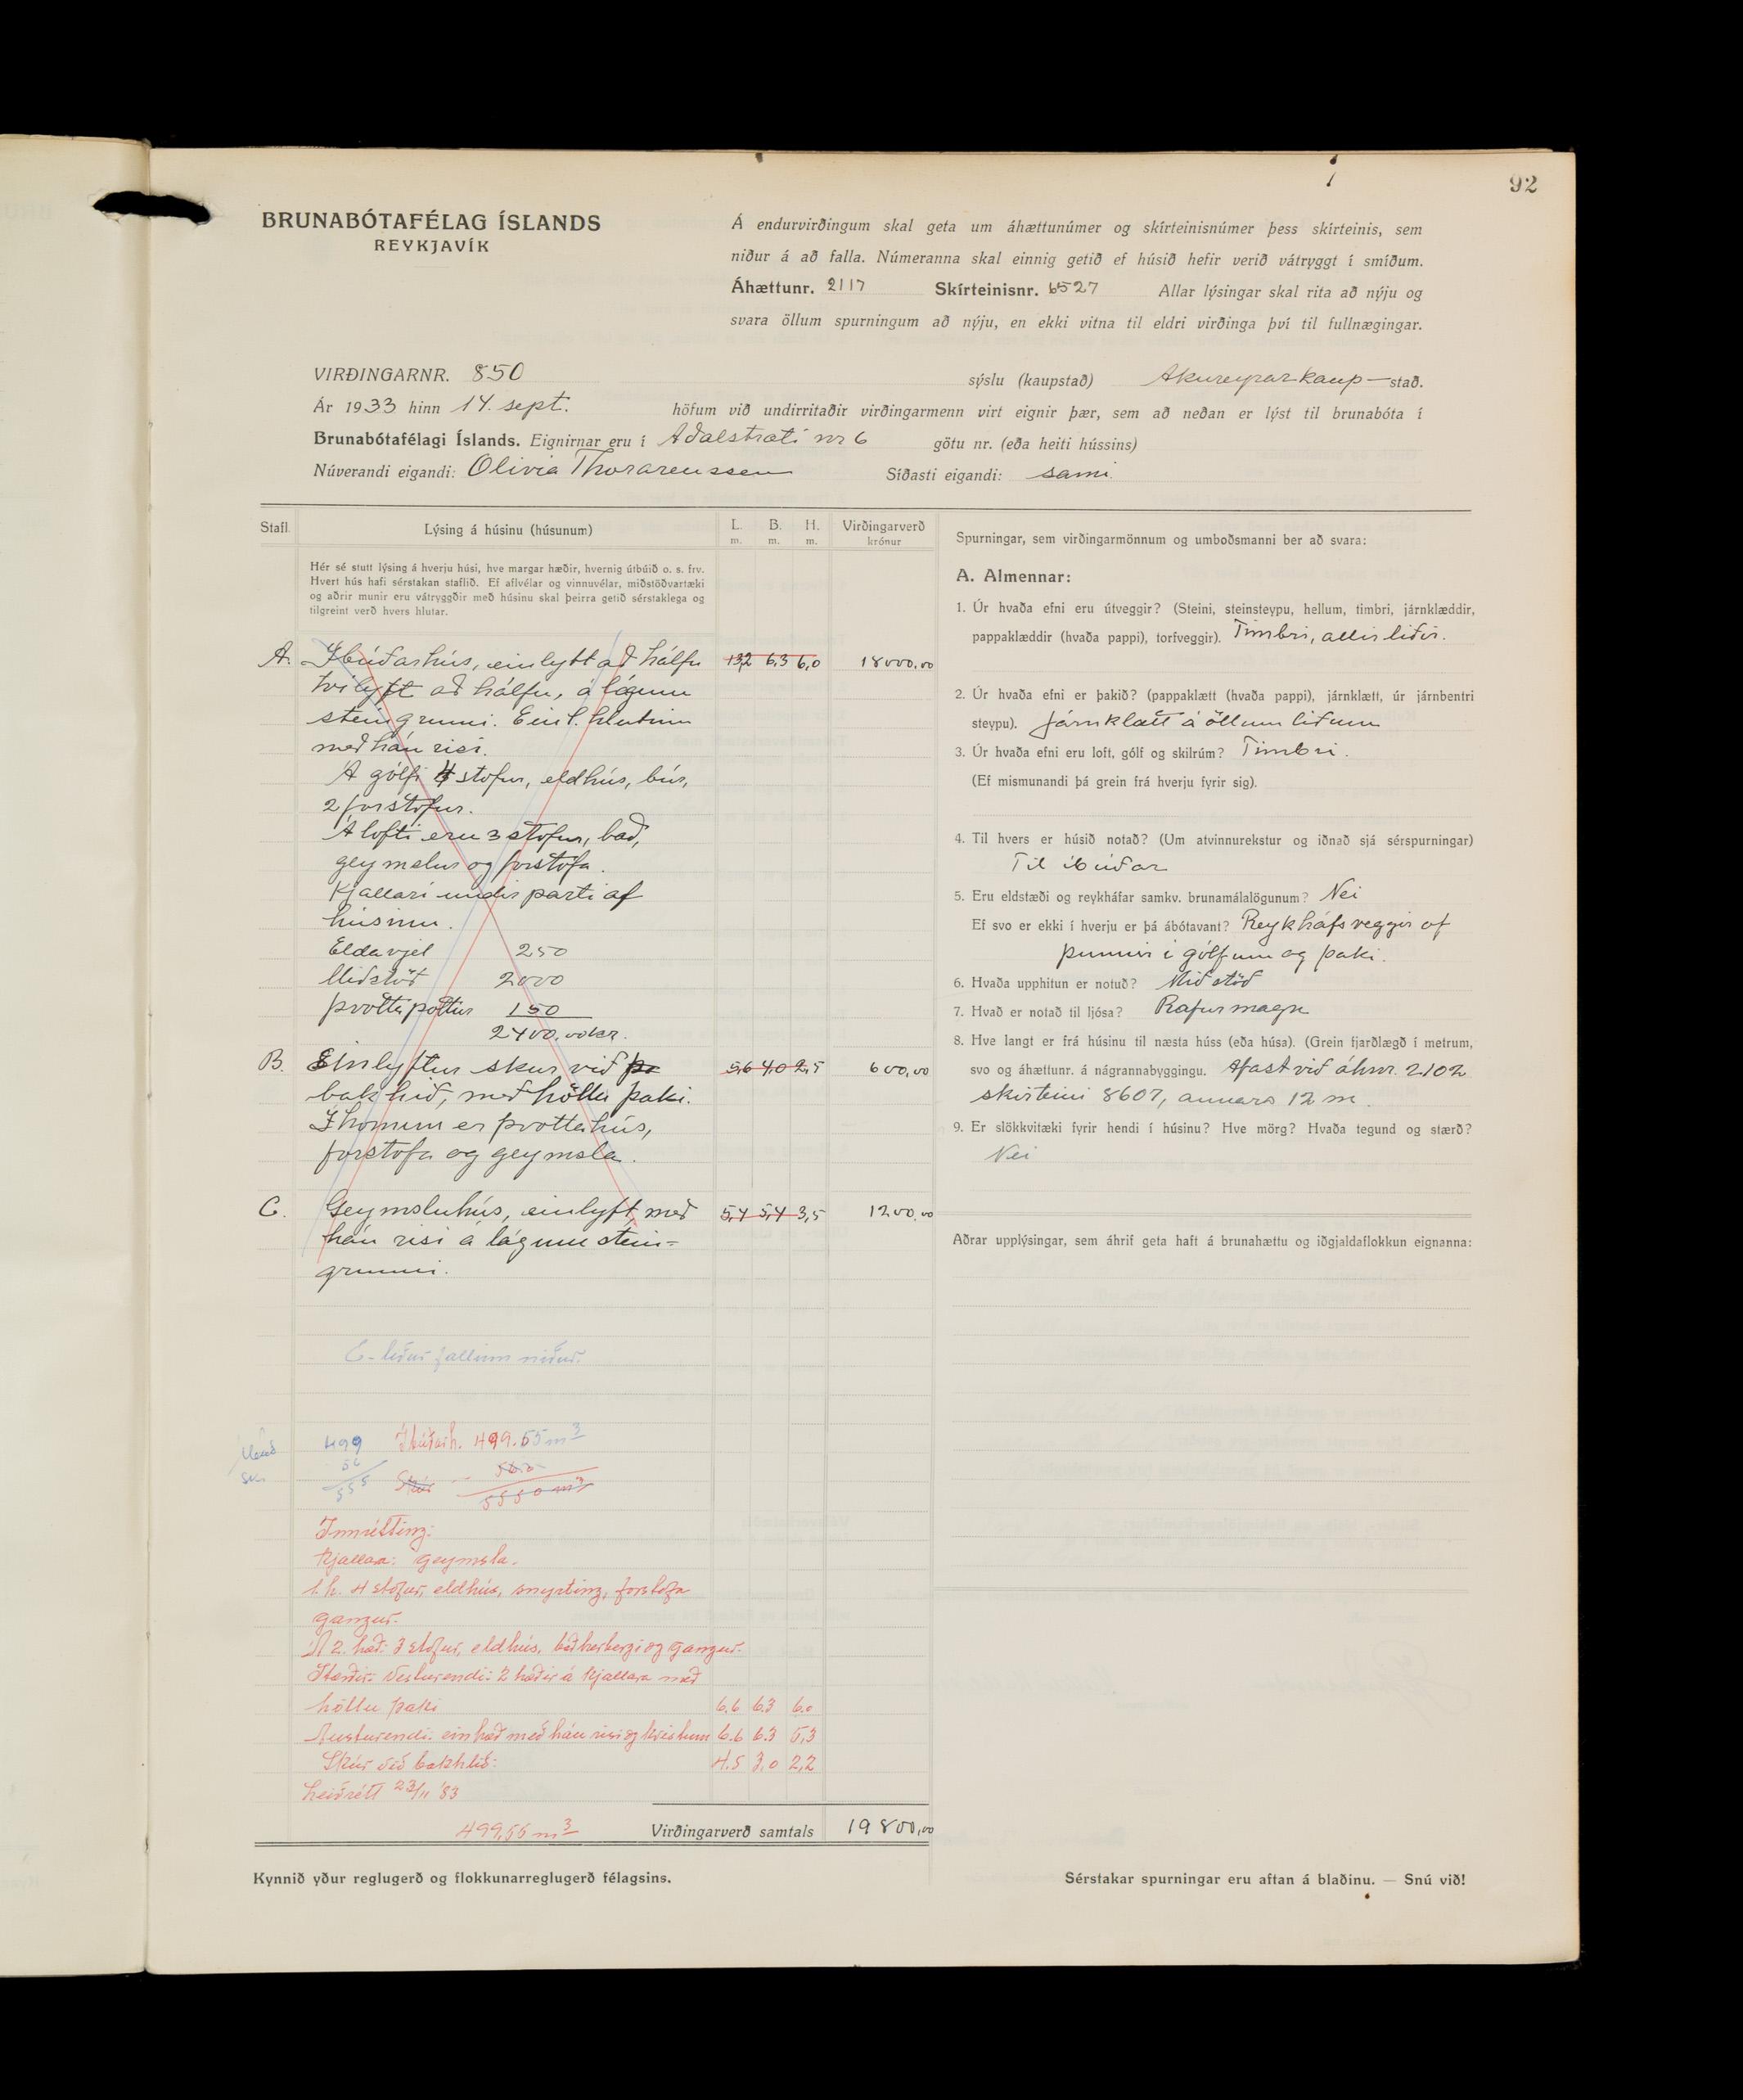 92
BRUNABÓTAFÉLAG ÍSLANDS
REYKJAVÍK
Á endurvirðingum skal geta um áhættunúmer og skírteinisnúmer þess skírteinis, sem
niður á að falla. Númeranna skal einnig getið ef húsið hefir verið vátryggt í smíðum.
Áhættunr. 2117 Skírteinisnr. 6527 Allar lýsingar skal rita að nýju og
svara öllum spurningum að nýju, en ekki vitna til eldri virðinga því til fullnægingar.
VIRÐINGARNR. 850 sýslu (kaupstað) Akureyrarkaup-stað.
Ár 1933 hinn 14. sept. höfum við undirritaðir virðingarmenn virt eignir þær, sem að neðan er lýst til brunabóta í
Brunabótafélagi Íslands. Eignirnar eru í Aðalstræti nr 6 götu nr. (eða heiti hússins)
Núverandi eigandi: Olivia Thorarenssen Síðasti eigandi: sami.
Stafl. Lýsing á húsinu (húsunum) L. m. B. m. H. m. Virðingarverð krónur
Hér sé stutt lýsing á hverju húsi, hve margar hæðir, hvernig útbúið o. s. frv.
Hvert hús hafi sérstakan staflið. Ef aflvélar og vinnuvélar, miðstöðvartæki
og aðrir munir eru vátryggðir með húsinu skal þeirra getið sérstaklega og
tilgreint verð hvers hlutar.
A. Íbúðarhús, einlyft að hálfu 13,2 6,3 6,0 18000,00
tvílyft að hálfu, á lágum
steingrunni. Einl. hlutinn
með háu risi.
Á gólfi 4 stofur, eldhús, búr,
2 forstofur.
Á lofti eru 3 stofur, bað,
geymslur og forstofa.
Kjallari undir parti af
húsinu.
Eldavjel 250
Miðstöð 2000
Þvottapottur 150
2400,00 kr.
B. Einlyftur skur við
bakhlið, með höllu þaki. 5,6 4,0 2,5 600,00
Í honum er þvottahús,
forstofa og geymsla.
C. Geymsluhús, einlyft, með 5,4 5,4 3,5 1200,00
háu risi á lágum stein=
grunni.
C-liður fallinn niður.
499 Íbúðarh. 499.55 m3
56 Skúr
555
Innrétting:
Kjallara: geymsla.
1. h. 4 stofur, eldhús, snyrting, forstofa
gangur.
Á 2. hæð: 3 stofur, eldhús, baðherbergi og gangur.
Stærðir: Vesturendi: 2 hæðir á kjallara með
höllu þaki 6.6 6.3 6.0
Austurendi: ein hæð með háu risi og kvistum 6.6 6.3 5,3
Skúr við bakhlið: 4.5 3,0 2,2
Leiðrétt 23/11 '83
499,55 m3 Virðingarverð samtals 19800,00
Kynnið yður reglugerð og flokkunarreglugerð félagsins.
Spurningar, sem virðingarmönnum og umboðsmanni ber að svara:
A. Almennar:
1. Úr hvaða efni eru útveggir? (Steini, steinsteypu, hellum, timbri, járnklæddir,
pappaklæddir (hvaða pappi), torfveggir). Timbri, allir liðir.
2. Úr hvaða efni er þakið? (pappaklætt (hvaða pappi), járnklætt, úr járnbentri
steypu). Járnklætt á öllum liðum
3. Úr hvaða efni eru loft, gólf og skilrúm? Timbri.
(Ef mismunandi þá grein frá hverju fyrir sig).
4. Til hvers er húsið notað? (Um atvinnurekstur og iðnað sjá sérspurningar)
Til íbúðar
5. Eru eldstæði og reykháfar samkv. brunamálalögunum? Nei
Ef svo er ekki í hverju er þá ábótavant? Reykháfsveggir of
þunnir í gólfum og þaki.
6. Hvaða upphitun er notuð? Miðstöð
7. Hvað er notað til ljósa? Rafurmagn
8. Hve langt er frá húsinu til næsta húss (eða húsa). (Grein fjarðlægð í metrum,
svo og áhættunr. á nágrannabyggingu. Áfast við áhnr. 2102
skírteini 8607, annars 12 m.
9. Er slökkvitæki fyrir hendi í húsinu? Hve mörg? Hvaða tegund og stærð?
Nei
Aðrar upplýsingar, sem áhrif geta haft á brunahættu og iðgjaldaflokkun eignanna:
Sérstakar spurningar eru aftan á blaðinu. — Snú við!